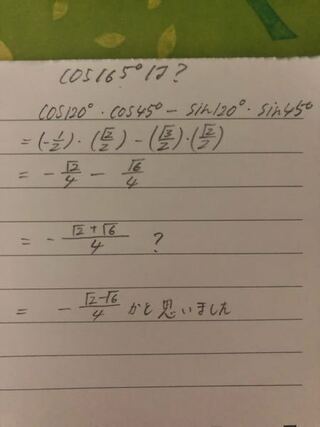 cos165°は?
cos120°・cos45° − sin120°・sin45°
= (-1/2)・(√2/2) − (√3/2)・(√2/2)
= - √2/4 - √6/4
= - (√2+√6)/4 ?
= - (√2-√6)/4 かと思いました